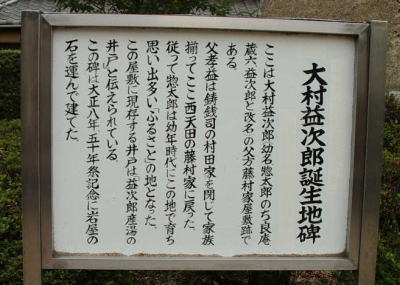 大村益次郎誕生地碑
ここは大村益次郎(幼名惣太郎のち良庵、
蔵六、益次郎と改名)の父方藤村家屋敷跡で
ある。
父孝益は鋳銭司の村田家を閉じて家族
揃ってここ西天田の藤村家に戻った。
従って惣太郎は幼年時代にこの地で育ち
思い出多い「ふるさと」の地となった。
この屋敷に現存する井戸は益次郎産湯の
井戸と伝えられている。
この碑は大正八年五十年祭記念に岩屋の
石を運んで建てた。